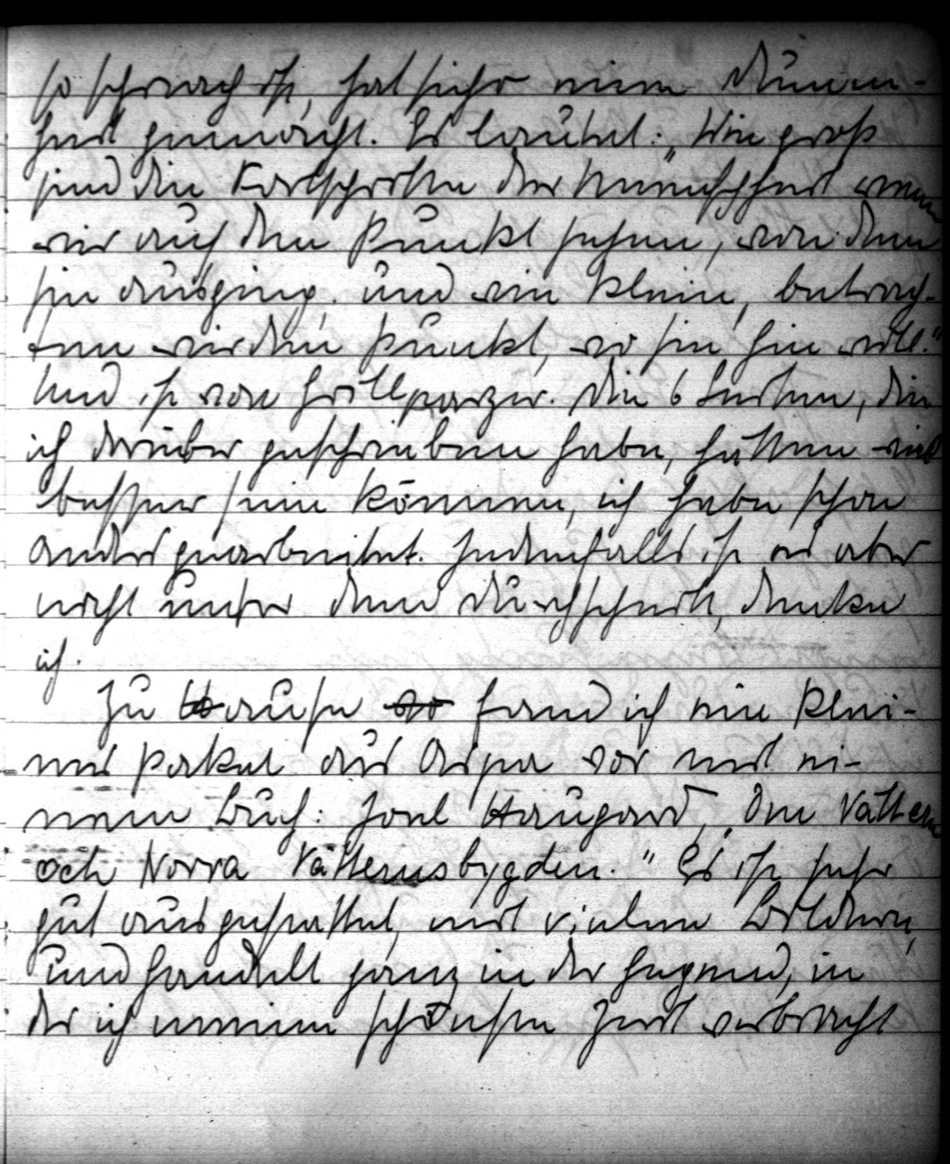 so schwach ist, hat sich's eine Dumm-
heit gemacht. Es lautet: "Wie groß
sind die Fortschritte der Menschheit wenn
wir auf den Punkt sehen, von dem
sie ausging, und wie klein, betrach-
ten wir den Punkt, wo sie hin will."
Und ist von Grillparzer. Die 6 Seiten, die
ich darüber geschrieben habe, hätten viel
besser sein können, ich habe schon
anders gearbeitet. Jedenfalls ist es aber
nicht unter dem Durchschnitt, denke
ich.
Zu Hause fand ich ein klei-
nes Paket aus Aspa vor mit ei-
nem Buch: Joel Haugard, "Om Vättern
och Norra Vätternsbygden." Es ist sehr
gut ausgestattet, mit vielen Bildern,
und handelt ganz in der Gegend, in
der ich meine schönste Zeit verbracht